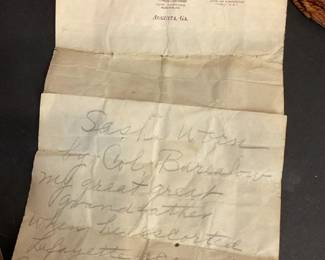 AUGUSTA, GA.
Sash Worn
by Col. Barrow
my great great
grandfather
when he escorted
Lafayette